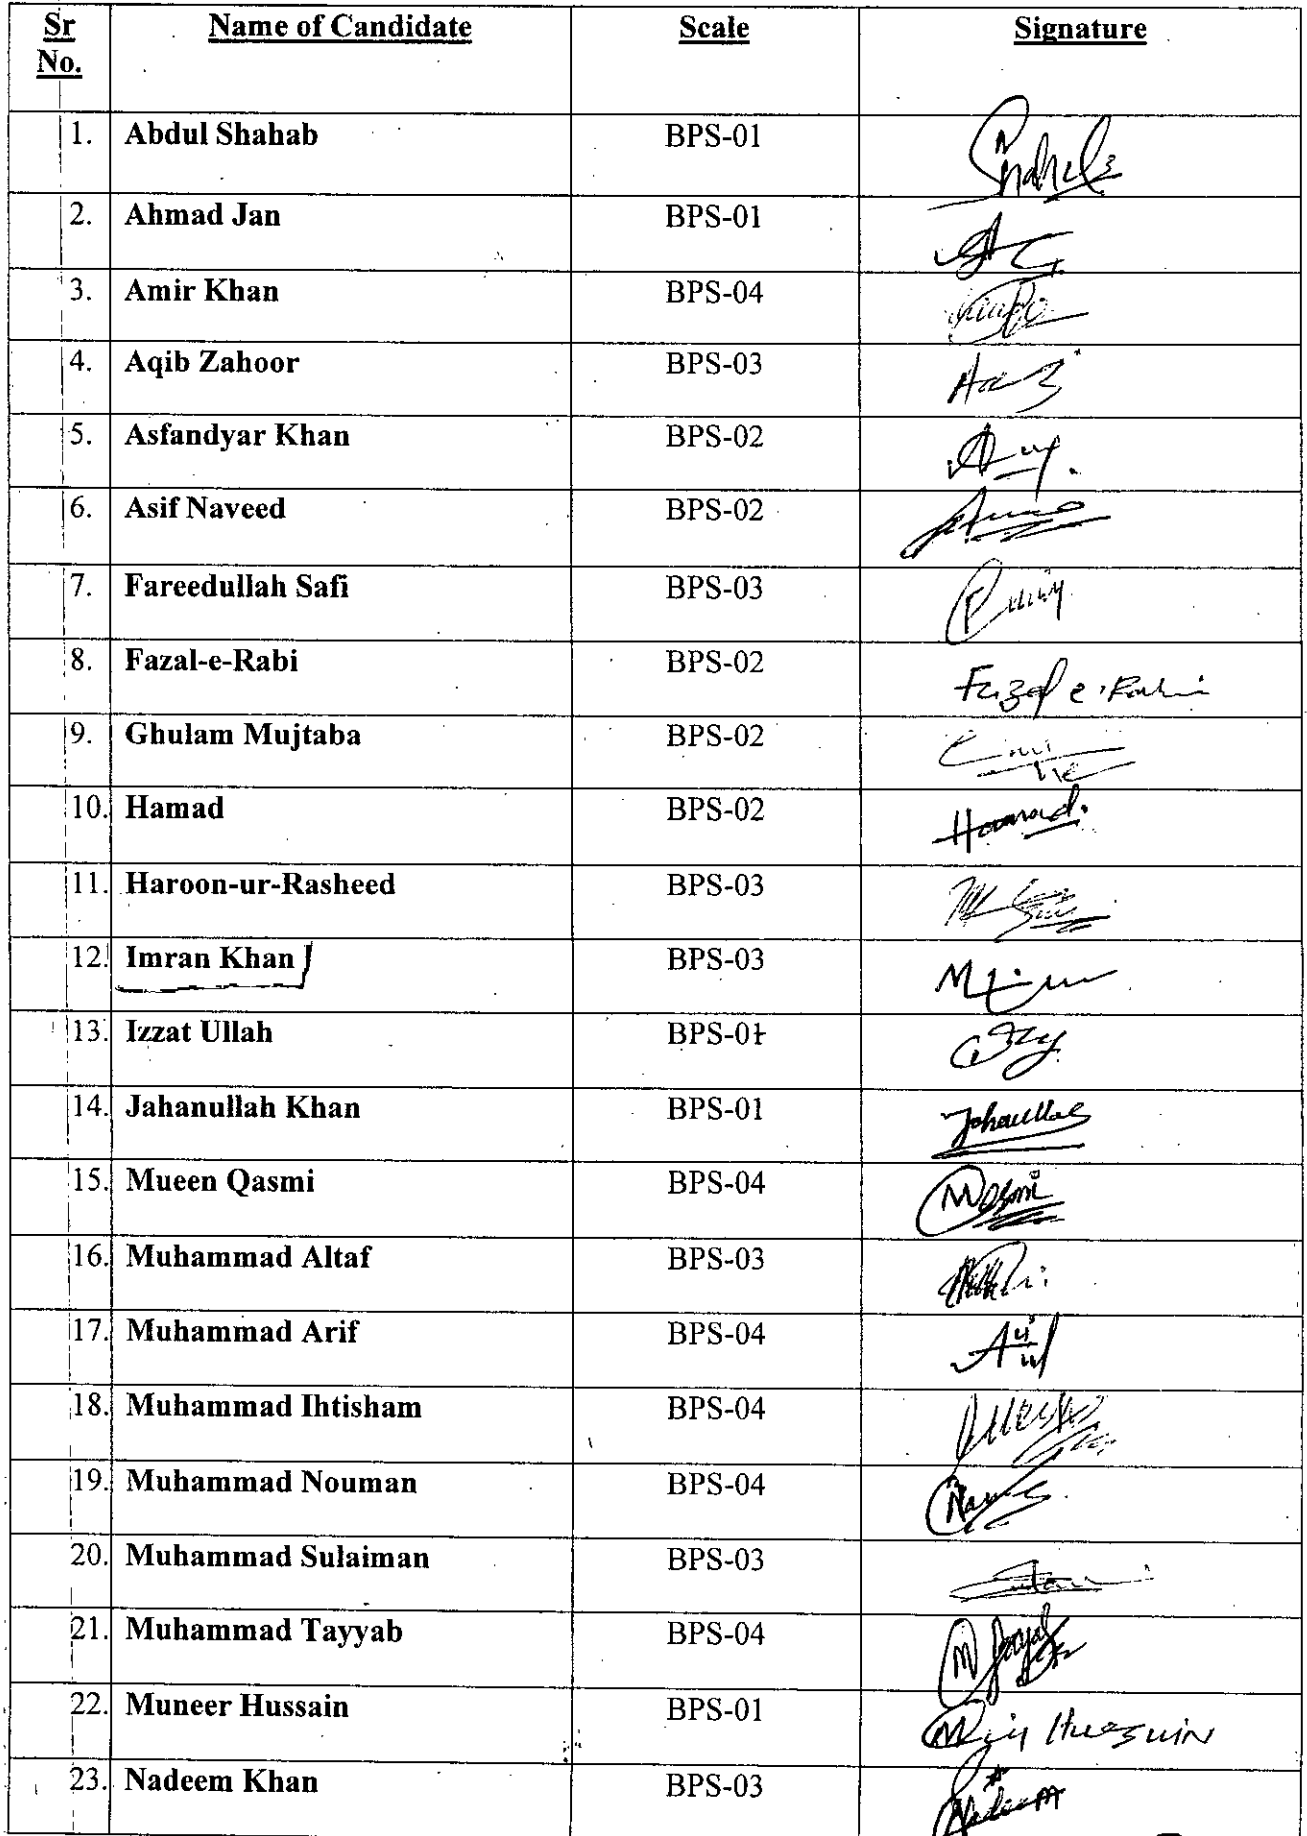 Sr No. Name of Candidate Scale Signature
1. Abdul Shahab BPS-01 Shahab
2. Ahmad Jan BPS-01
3. Amir Khan BPS-04
4. Aqib Zahoor BPS-03
5. Asfandyar Khan BPS-02
6. Asif Naveed BPS-02
7. Fareedullah Safi BPS-03
8. Fazal-e-Rabi BPS-02 Fazal e Rabi
9. Ghulam Mujtaba BPS-02
10. Hamad BPS-02 Hamad.
11. Haroon-ur-Rasheed BPS-03
12. Imran Khan BPS-03
13. Izzat Ullah BPS-01
14. Jahanullah Khan BPS-01
15. Mueen Qasmi BPS-04
16. Muhammad Altaf BPS-03
17. Muhammad Arif BPS-04
18. Muhammad Ihtisham BPS-04
19. Muhammad Nouman BPS-04
20. Muhammad Sulaiman BPS-03
21. Muhammad Tayyab BPS-04
22. Muneer Hussain BPS-01 Hussain
23. Nadeem Khan BPS-03 Nadeem